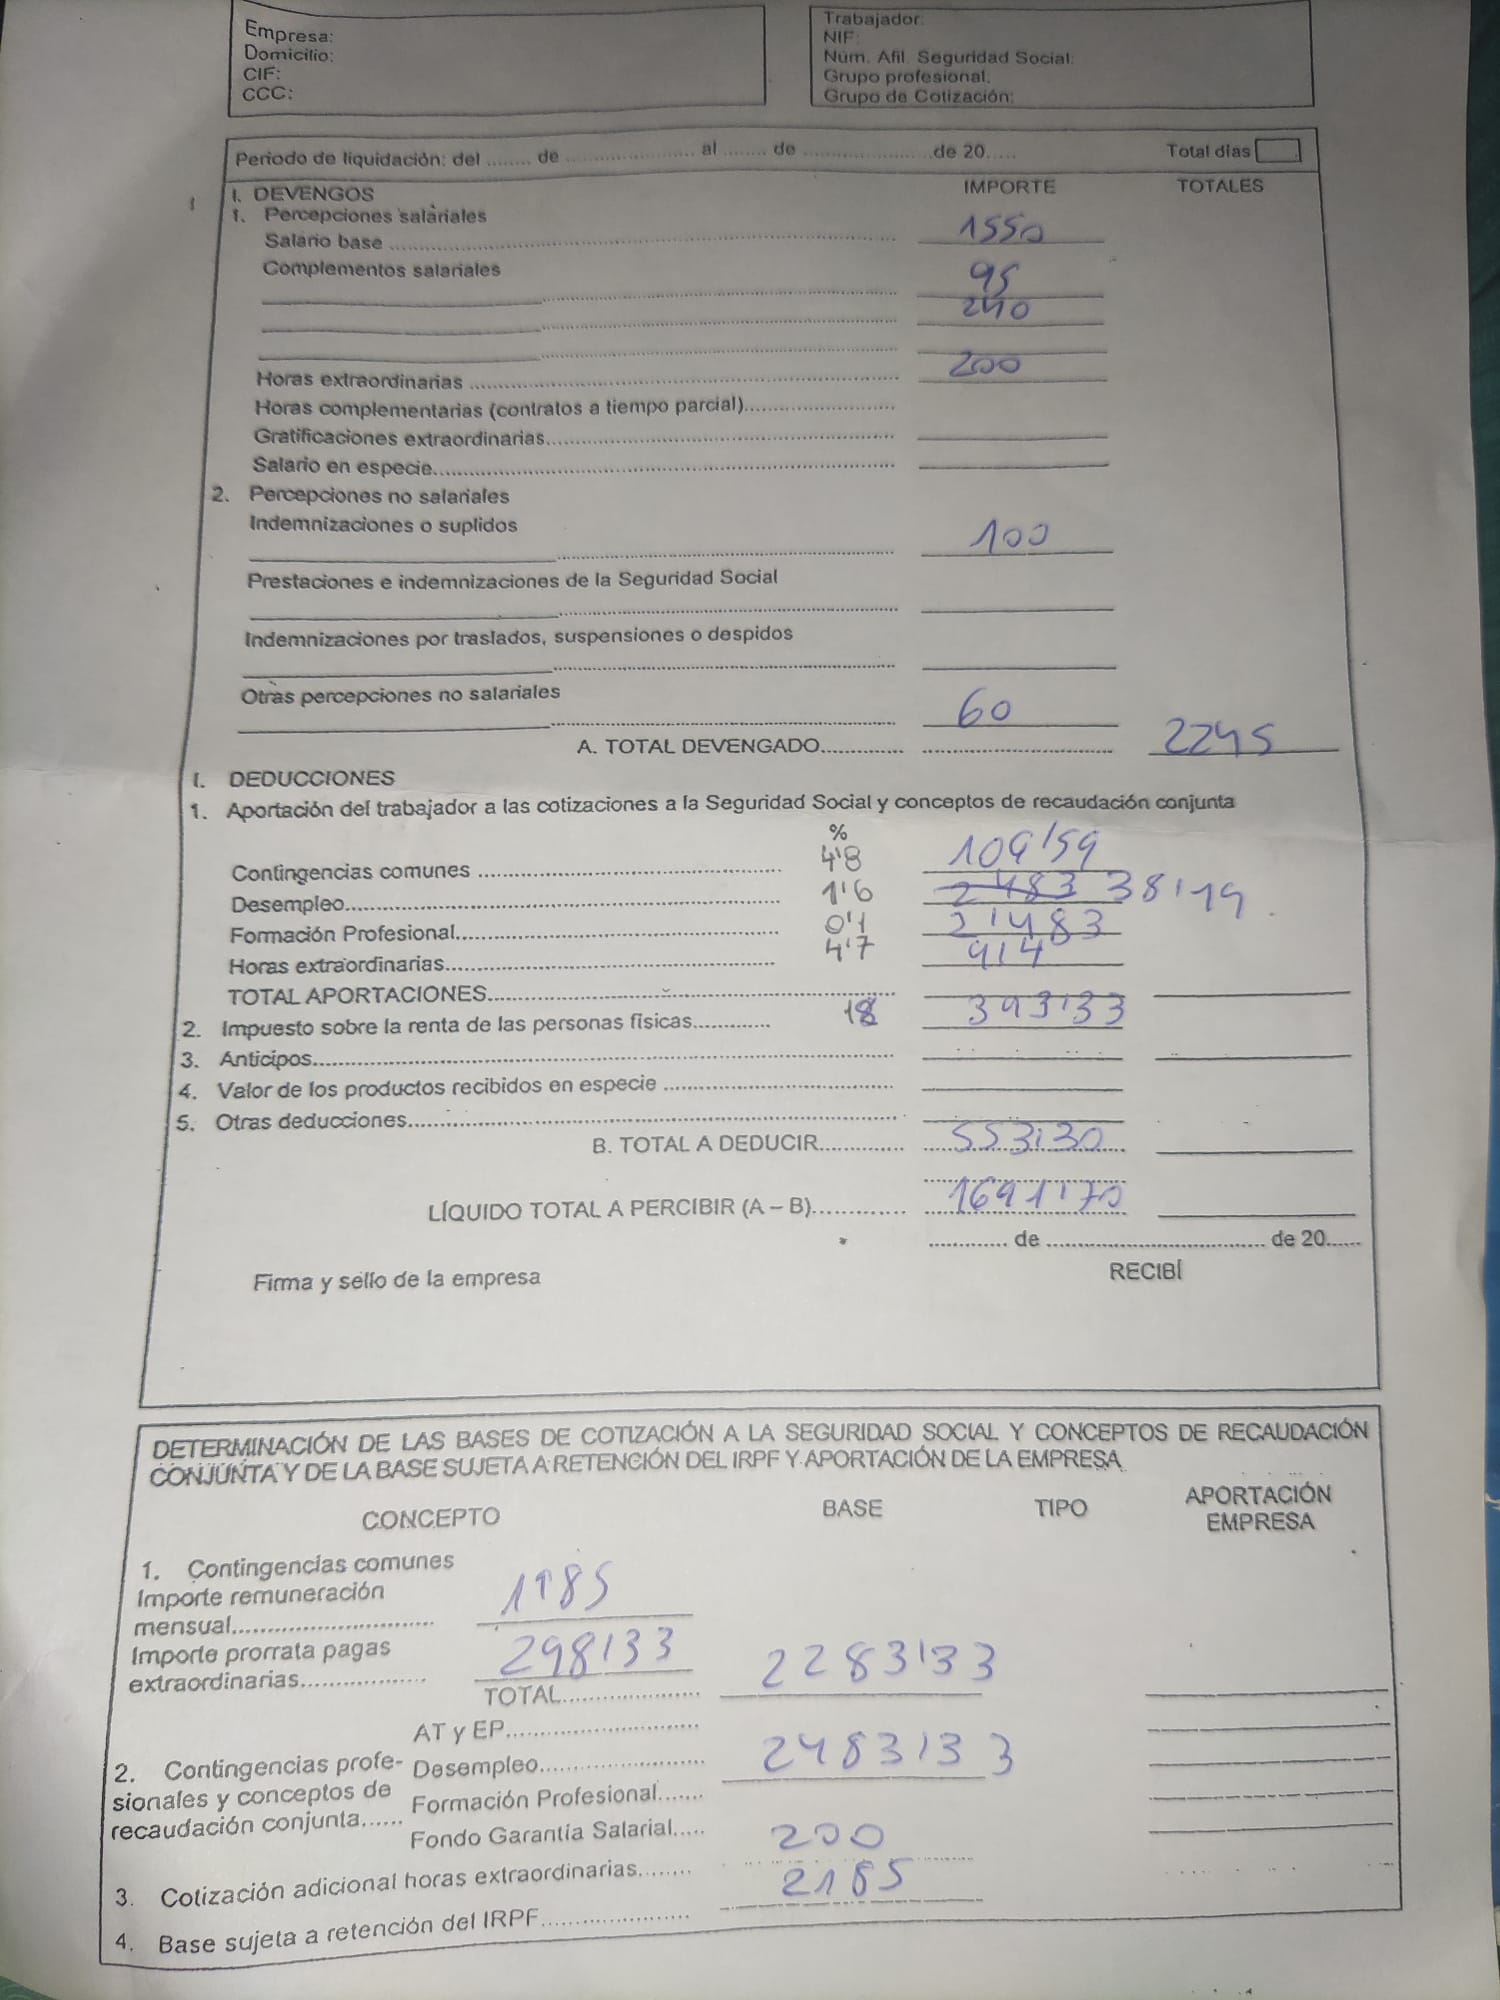 Empresa:
Domicilio:
CIF:
CCC:
Trabajador:
NIF:
Núm. Afil. Seguridad Social:
Grupo profesional:
Grupo de Cotización:
Periodo de liquidación: del ........ de ...................... al ........ de ...................... de 20..... Total días
I. DEVENGOS IMPORTE TOTALES
1. Percepciones salariales
Salario base 1550
Complementos salariales
95
240
Horas extraordinarias 200
Horas complementarias (contratos a tiempo parcial)
Gratificaciones extraordinarias
Salario en especie
2. Percepciones no salariales
Indemnizaciones o suplidos
100
Prestaciones e indemnizaciones de la Seguridad Social
Indemnizaciones por traslados, suspensiones o despidos
Otras percepciones no salariales
60
A. TOTAL DEVENGADO 2245
I. DEDUCCIONES
1. Aportación del trabajador a las cotizaciones a la Seguridad Social y conceptos de recaudación conjunta
%
Contingencias comunes 4'8 109'59
Desempleo 1'6 2483 38'19
Formación Profesional 0'1 2'483
Horas extraordinarias 4'7 9'4
TOTAL APORTACIONES
2. Impuesto sobre la renta de las personas físicas 18 393'33
3. Anticipos
4. Valor de los productos recibidos en especie
5. Otras deducciones
B. TOTAL A DEDUCIR 553'30
LÍQUIDO TOTAL A PERCIBIR (A – B) 1691'70
............ de .................................. de 20......
Firma y sello de la empresa RECIBÍ
DETERMINACIÓN DE LAS BASES DE COTIZACIÓN A LA SEGURIDAD SOCIAL Y CONCEPTOS DE RECAUDACIÓN
CONJUNTA Y DE LA BASE SUJETA A RETENCIÓN DEL IRPF Y APORTACIÓN DE LA EMPRESA
CONCEPTO BASE TIPO APORTACIÓN
EMPRESA
1. Contingencias comunes
Importe remuneración
mensual
Importe prorrata pagas
extraordinarias 298'33
TOTAL 2283'33
AT y EP
2. Contingencias profe- Desempleo 2483'33
sionales y conceptos de Formación Profesional
recaudación conjunta Fondo Garantía Salarial
3. Cotización adicional horas extraordinarias 200
4. Base sujeta a retención del IRPF 2185